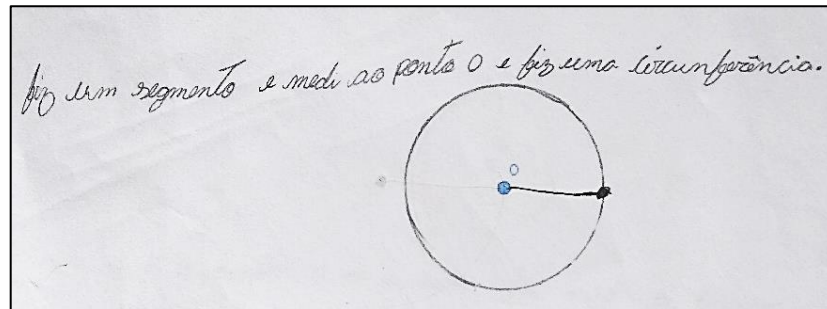 fiz um segmento e medi ao ponto O e fiz uma circunferência.
O